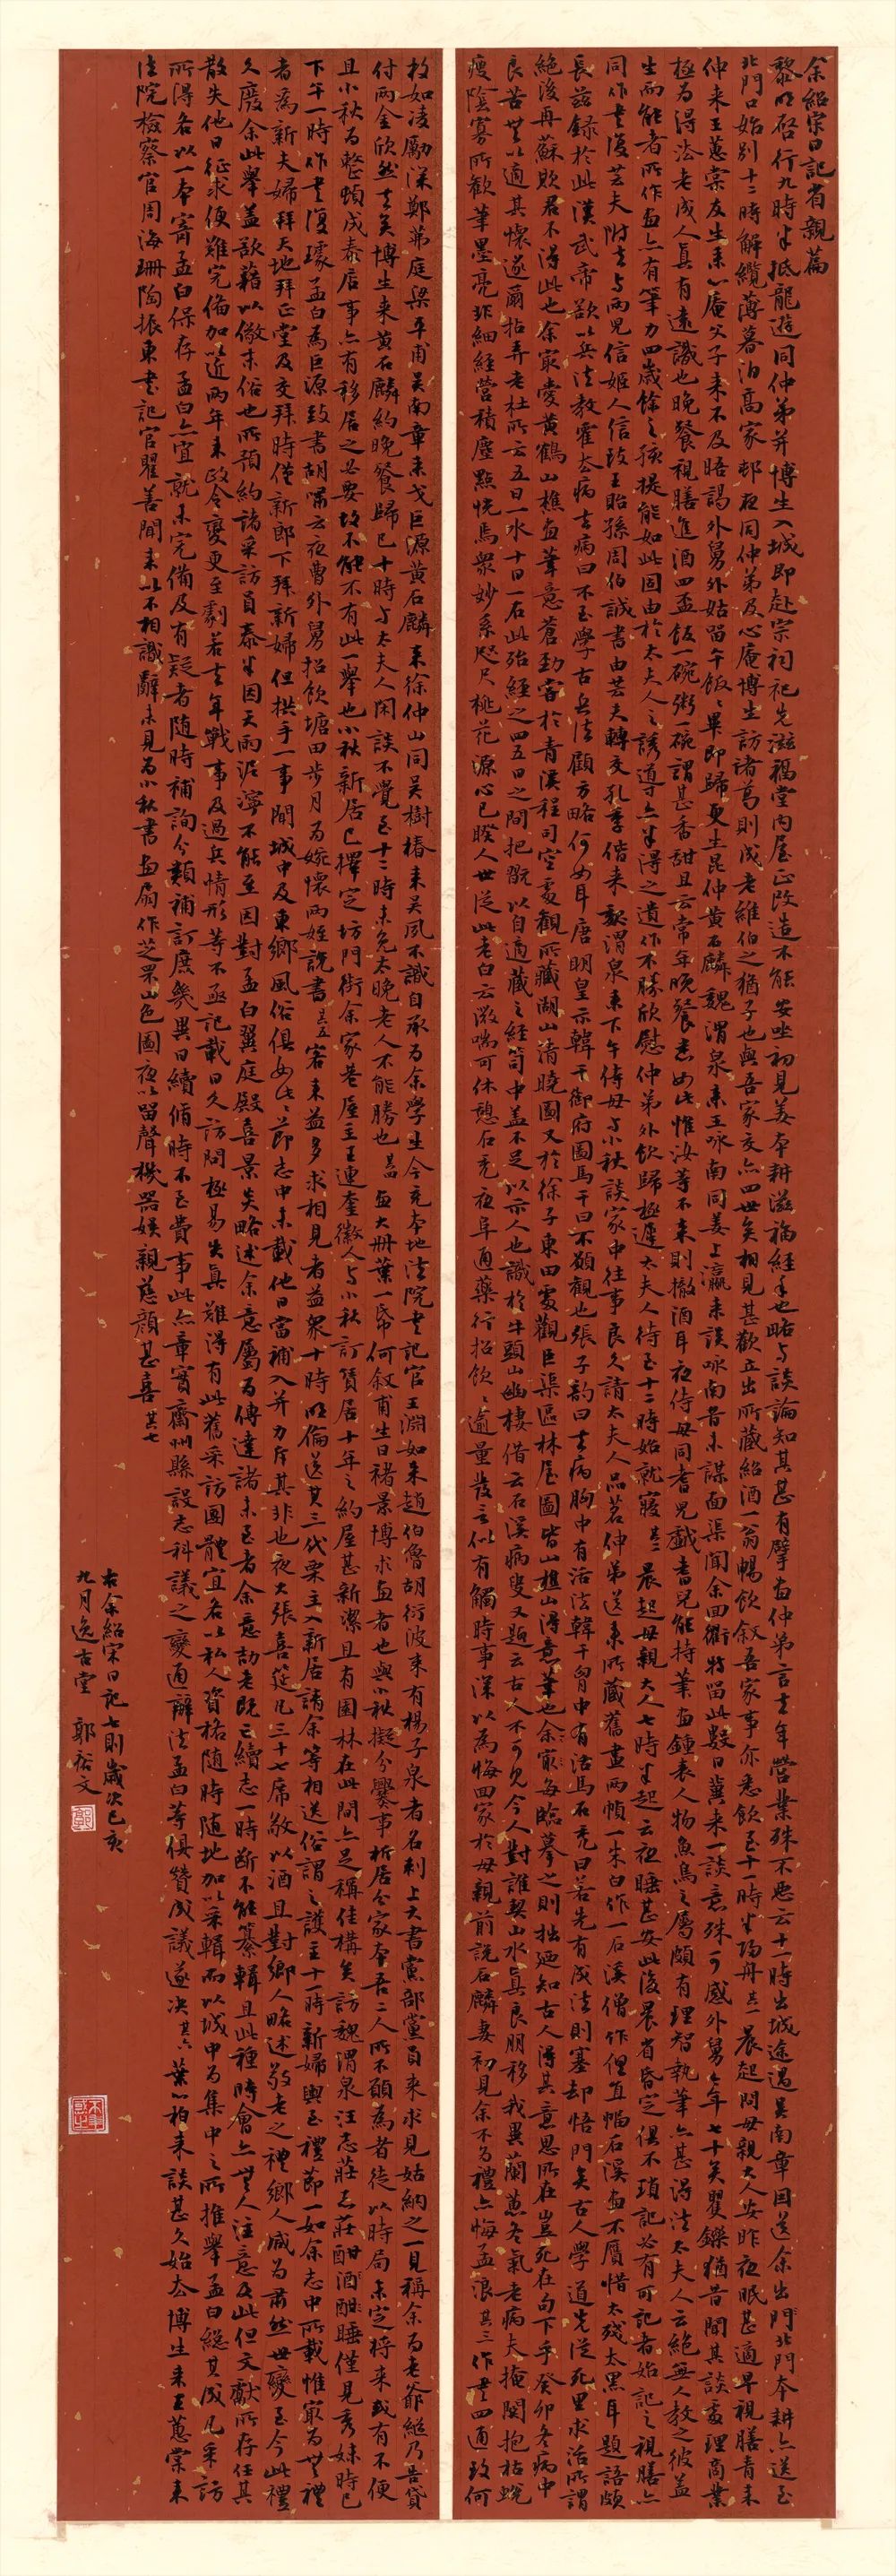 余紹宋日記省親篇
黎明啓行九時半抵龍遊同仲弟并博生入城即赴宗祠祀先滋福堂內屋正改造不能安坐初見姜本耕滋福經手也略与談論知其甚有擘畫仲弟言去年營業殊不惡云十一時出城途遇吳南章固送余出門北門本耕亦送至
北門口始別十二時解纜薄暮泊髙家邨夜同仲弟及心庵博生訪諸葛則成老維伯之猶子也與吾家交亦四世矣相見甚歡立出所藏紹酒一翁暢飲叙吾家事亦悉飲至十一時半歸舟其一晨起問母親大人安昨夜眠甚適早視膳青來
仲来王蕙棠友生来心庵父子来不及晤謁外舅外姑留午飯飯畢即歸更生昆仲黃石麟魏渭泉来王咏南同姜上瀛来談咏南昔未謀面渠聞余回衢特留此數日冀来一談意殊可感外舅今年七十矣矍鑠猶昔聞其談處理商業
極為得法老成人真有遠識也晚餐視膳進酒四盃飯一碗粥一碗謂甚香甜且云常年晚餐悉如此惟汝等不来則撤酒耳夜侍母同耆兒戲耆兒能持筆畫鍾表人物魚鳥之屬頗有理智執筆亦甚得法太夫人云絶無人教之彼蓋
生而能者所作畫亦有筆力四歲餘之孩提能如此固由於太夫人之誘導亦半得之遺作不勝欣慰仲弟外飲歸極遲太夫人待至十二時始就寢其二晨起母親大人七時半起云夜睡甚安此後晨省昏定俱不瑣記必有可記者始記之視膳亦
同作書復芸夫附去与兩兒信姬人信致王貽孫周伯誠書由芸夫轉交孔季偕来鄭渭泉来下午侍母与小秋談家中往事良久請太夫人品茗仲弟送来所藏舊畫兩幀一朱白作一石溪僧作俚直幅石溪畫不贋惜太殘太黑耳題語頗
長茲録於此漢武帝欲以兵法教霍去病去病曰不至學古兵法顧方略何如耳唐明皇示韓干御府圖馬干曰不願觀也張子韵曰去病胸中有活法韓干胷中有活馬石禿曰若先有成法則塞却悟門矣古人學道先從死里求活所謂
絶後再蘇欺君不得此也余寂愛黃鶴山樵畫筆意蒼勁嘗於青溪程司空處觀所藏湖山清曉圖又於徐子東田處觀巨渠區林屋圖皆山樵山得意筆也余寂每臨摹之則拙廼知古人得其意思所在豈死在句下乎癸卯冬病中
良苦無以適其懷遂爾拈弄老杜所云五日一水十日一石此殆經之四五日之間把翫以自適藏之經笥中蓋不足以示人也識於牛頭山幽棲借云石溪病叟又題云古人不可見今人對誰契山水真良朋移我異蘭蕙冬氣老病夫掩關抱枯蛻
瘦陰寡所歡筆墨亮非細經營積塵點恍焉衆妙系咫尺桃花源心已睽人世從此老白云漱喘可休憩石禿夜阜通藥行招飲飲逾量發言似有觸時事深以為悔回家於母親前說石麟妻初見余不為禮亦悔孟浪其三作書四通致何
枚如凌勵深鄭茀庭梁平甫吳南章来戈巨源黃石麟来徐仲山同吳樹椿来吳夙不識自承為余學生今充本地法院書記官王淵如来趙伯魯胡衍波来有楊子泉者名刺上大書黨部黨員来求見姑納之一見稱余為老爺繼乃告貸
付兩金欣然去矣博生来黃石麟約晚餐歸已十時与太夫人閑談不覺至十二時未免太晚老人不能勝也其四畫大冊葉一帋何叙甫生日褚景博求畫者也與小秋擬分爨事析居分家本吾二人所不願為者徒以時局未定将来或有不便
且小秋為整頓成泰店事亦有移居之必要故不能不有此一舉也小秋新居已擇定坊門街余家巷屋主王連奎徽人与小秋訂賃居十年之約屋甚新潔且有園林在此間亦足稱佳構矣訪魏渭泉汪志莊志莊酣酒酣睡僅見秀妹時已
下午一時作書復璩孟白爲巨源致書胡嘯云夜曹外舅招飲塘田步月為婉懷兩姪說書其五客来益多求相見者益衆十時明倫送其三代栗主入新居請余等相送俗謂之護主十一時新婦輿至禮節一如余志中所載惟寂為無禮
者爲新夫婦拜天地拜正堂及交拜時僅新郎下拜新婦但拱手一事聞城中及東鄉風俗俱如此此節志中未載他日當補入并力斥其非也夜大張喜筵凡三十七席敬以酒且對鄉人略述敬老之禮鄉人咸為肅然世變至今此禮
久廢余此舉蓋欲藉以儆末俗也所預約諸采訪員泰半因天雨泥濘不能至因對孟白翼庭殿喜景炎略述余意屬為傳達諸未至者余意劼老既亡續志一時斷不能纂輯且此種時會亦無人注意及此但文獻所存任其
散失他日征求便難完備加以近兩年来政令變更至劇若去年戰事及過兵情形等不亟記載日久訪問極易失真難得有此舊采訪團體宜各以私人資格隨時隨地加以采輯而以城中為集中之所推舉孟白總其成凡采訪
所得各以一本寄孟白保存孟白亦宜就未完備及有疑者隨時補詢分類補訂庶幾異日續脩時不至費事此亦章實齋州縣設志科議之變通辦法孟白等俱贊成議遂决其六葉心柏来談甚久始去博生来王蕙棠来
法院檢察官周海珊陶振東書記官瞿善聞来以不相識辭未見為小秋書畫扇作芝罘山色圖夜以留聲機器娱親慈顏甚喜其七
右余紹宋日記七則歲次己亥
九月逸古堂 郭裕文